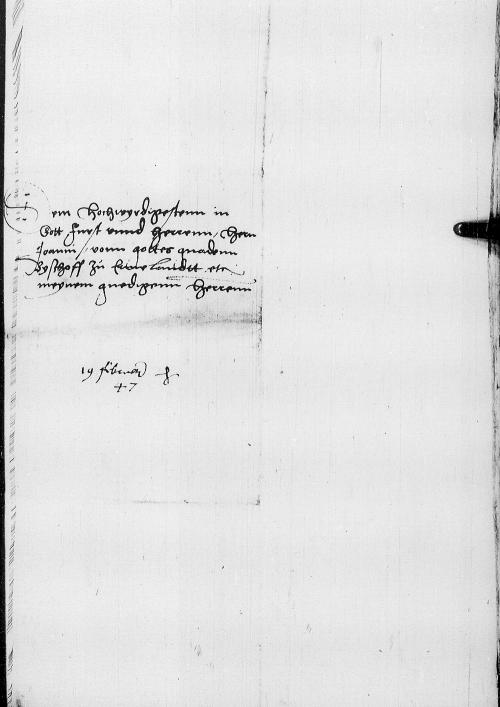 Dem hochwyrdigestenn in
Gott furst vnnd herrenn, hern
Joanni, vonn gottes gnadenn
Byschoff zu Ermelandtt etc
meynem gnedigenn herrenn
19 februarii
47